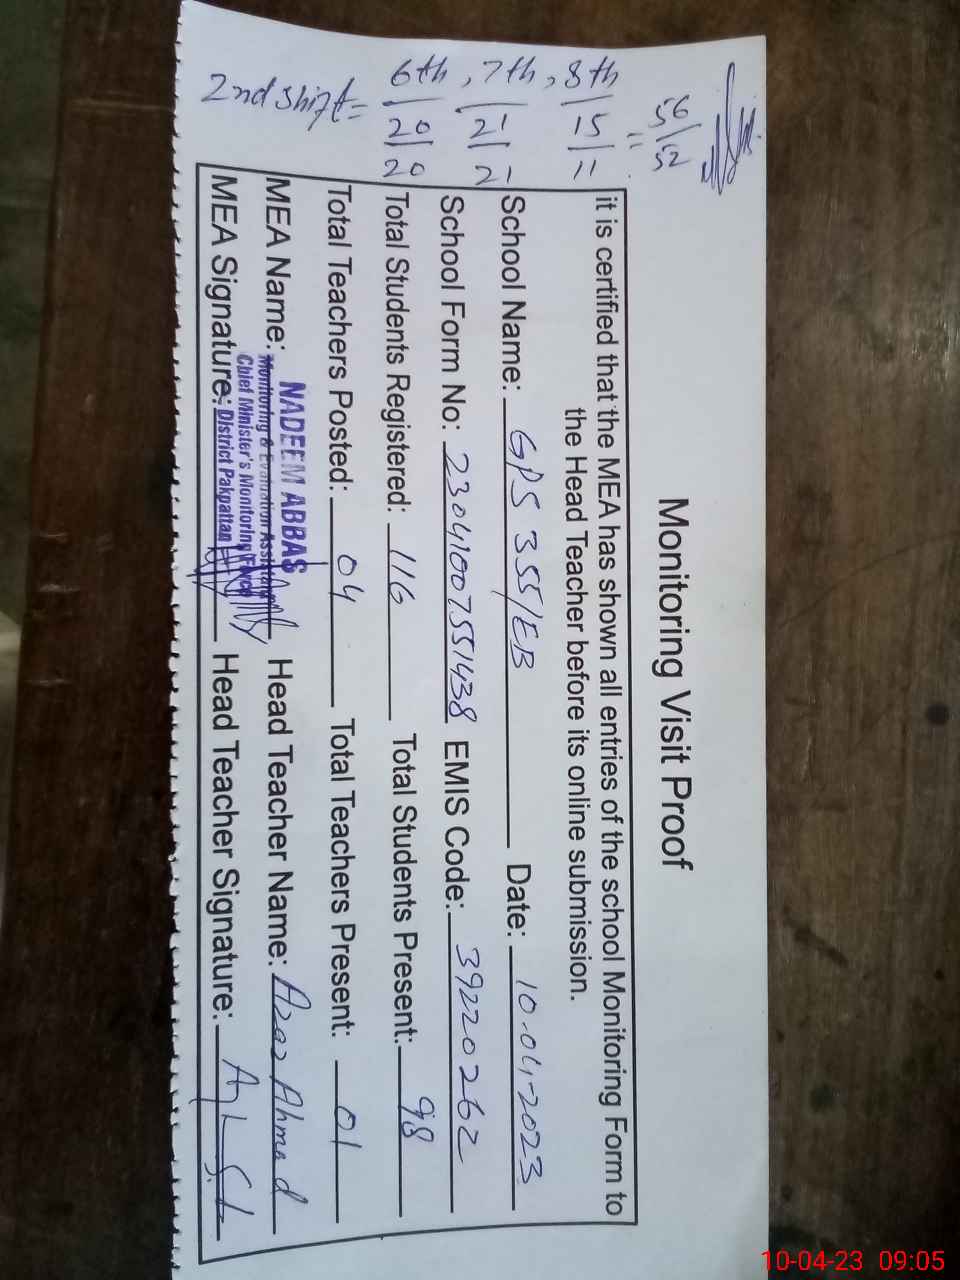 Monitoring Visit Proof
it is certified that the MEA has shown all entries of the school Monitoring Form to
the Head Teacher before its online submission.
School Name: GPS 355/EB Date: 10-04-2023
School Form No: 23041007551438 EMIS Code: 39220262
Total Students Registered: 116 Total Students Present: 98
Total Teachers Posted: 04 Total Teachers Present: 01
MEA Name: NADEEM ABBAS Head Teacher Name: Azaz Ahmad
Monitoring & Evaluation Assistant
Chief Minister's Monitoring Force
MEA Signature: District Pakpattan Head Teacher Signature:
2nd shift = 6th, 7th, 8th
20/20 21/21 15/11 = 56/52
10-04-23 09:05